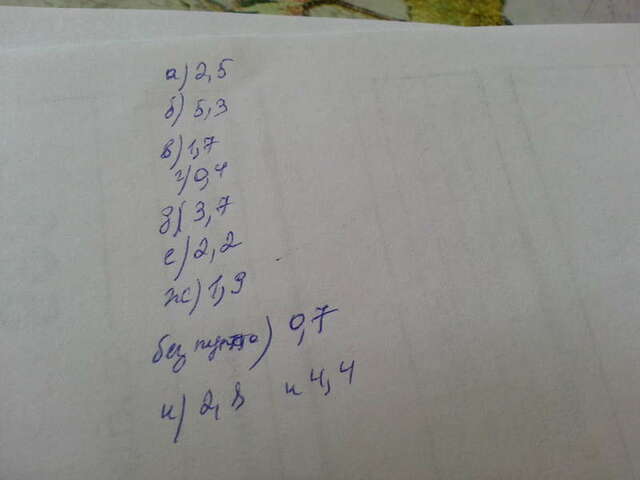 а) 2,5
б) 5,3
в) 1,7
г) 0,4
д) 3,7
е) 2,2
ж) 1,9
без пункта) 0,7
и) 2,8 и 4,4